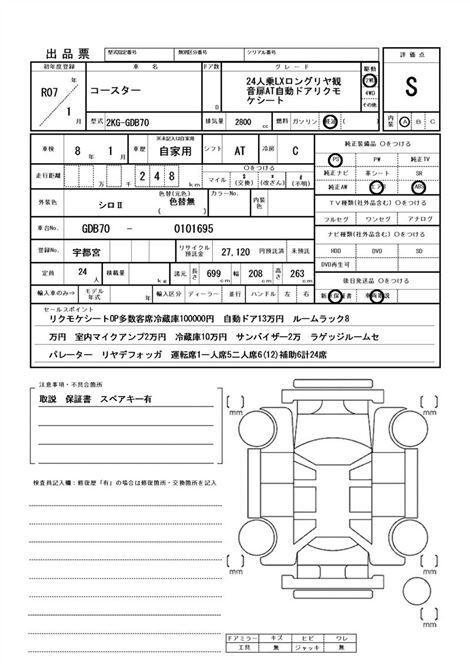 出品票 型式指定番号 類別区分番号 シリアル番号 評価点
初年度登録 車名 ドア数 グレード 駆動
R07年 1月 コースター D 24人乗LXロングリヤ観音扉AT自動ドアリクモケシート 2WD 4WD その他 S
型式 2KG-GDB70 排気量 2800 cc 燃料 ガソリン 軽油 内装 A B C
車検 8年 1月 車歴 ※未記入は自家用 自家用 シフト AT 冷房 C 純正装備品 〇をつける
PS PW 純正TV
走行距離 万 千 2 4 8 km 〇をつける マイル $(交換) *(改ざん) #(不明) 純正ナビ 革シート SR
純正AW エアB ABS
外装色 シロⅡ 色替(元色) 色替無 カラーNo. 内装色 TV種類(社外品含む)〇をつける
フルセグ ワンセグ アナログ
車台No. GDB70 - 0101695 ナビ種類(社外品含む)〇をつける
登録No. 宇都宮 リサイクル預託金 27,120 円預託済 未預託 HDD DVD SD
DVD再生可
定員 24人 積載量 kg 諸元 長さ 699 幅 208 高さ 263 後日発送品 〇をつける
輸入車のみ⇒ モデル年式 年 輸入区分 ディーラー 並行 ハンドル 左 右 新車保証書 車両取説
セールスポイント
リクモケシートOP多数客席冷蔵庫100000円 自動ドア13万円 ルームラック8
万円 室内マイクアンプ2万円 冷蔵庫10万円 サンバイザー2万 ラゲッジルームセ
パレーター リヤデフォッガ 運転席1一人席5二人席6(12)補助6計24席
注意事項・不具合箇所
取説 保証書 スペアキー有
検査員記入欄:修復歴「有」の場合は修復箇所・交換箇所を記入
mm mm
mm mm
mm
ドアミラー キズ ヒビ ワレ
工具 無 ジャッキ 無